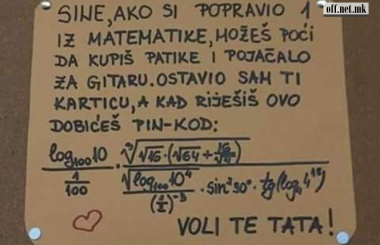 off.net.mk
SINE, AKO SI POPRAVIO 1
IZ MATEMATIKE, MOŽEŠ POĆI
DA KUPIŠ PATIKE I POJAČALO
ZA GITARU. OSTAVIO SAM TI
KARTICU, A KAD RIJEŠIŠ OVO
DOBIĆEŠ PIN-KOD:
log₁₀₀10
√16 · (√64 ÷
1/100
√log₁₀₀10⁴
· sin²30° ·
VOLI TE TATA!